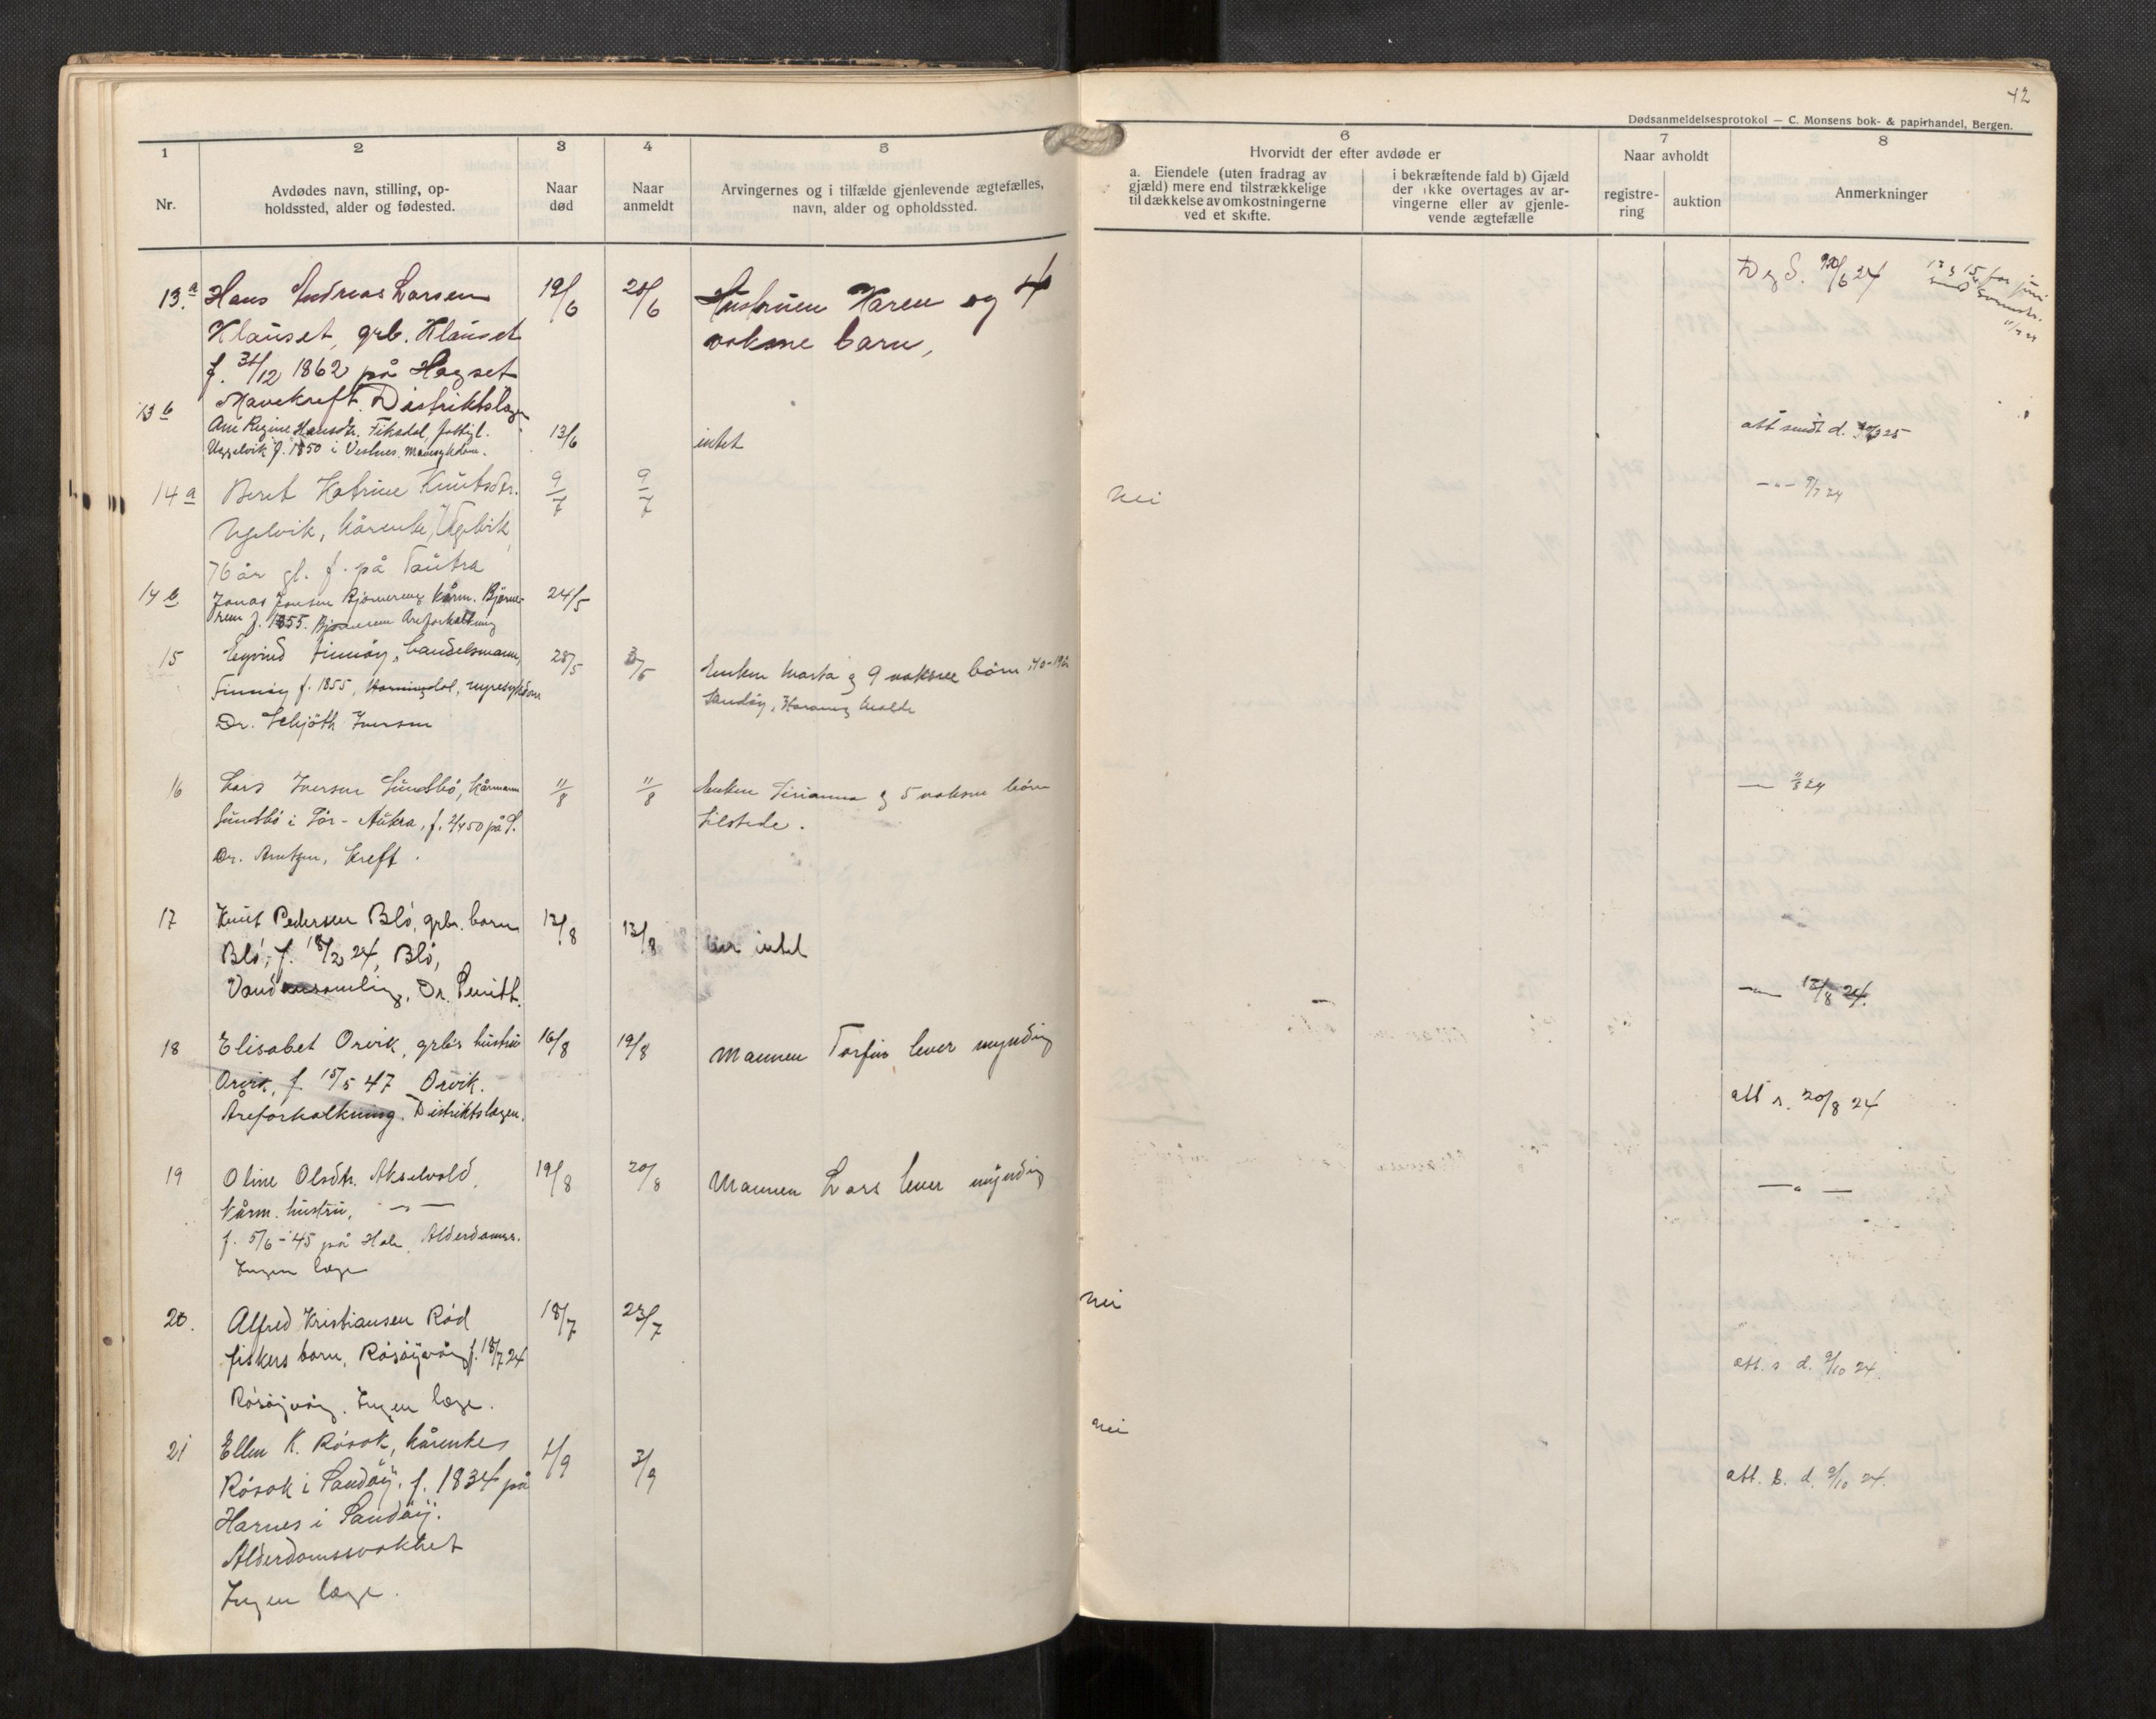 42
Dødsanmeldelsesprotokol — C. Monsens bok- & papirhandel, Bergen.
1
2
3
4
5
6
7
8
Nr.
Avdødes navn, stilling, op-
holdssted, alder og fødested.
Naar
død
Naar
anmeldt
Arvingernes og i tilfælde gjenlevende ægtefælles,
navn, alder og opholdssted.
Hvorvidt der efter avdøde er
a. Eiendele (uten fradrag av
gjæld) mere end tilstrækkelige
til dækkelse av omkostningerne
ved et skifte.
i bekræftende fald b) Gjæld
der ikke overtages av ar-
vingerne eller av gjenle-
vende ægtefælle
Naar avholdt
registre-
ring
auktion
Anmerkninger
13.a Hans Andreas Larsen 19/6 20/6 Hustruen Karen og 4
Klauset, grb. Klauset voksne barn,
f. 31/12 1862 på Hagset
Mavekreft. Distriktslægen
13 b Ane Regine Hansdtr. Fiksdal, fattigl. 13/6 intet
Uggelvik f. 1850 i Vestnes.
14 a Beret Katrine Knutsdtr. 9/7 9/7 Nei 9/7 24
Ugelvik, kårenke, Ugelvik,
76 år gl. f. på Tautra
14 b Jonas Jonsen Bjørnerem kårm. Bjørne- 24/5
rem f. 1855. Bjørnerem Areforkalkning
15 Eyvind Finnøy, handelsmann, 28/5 Enken Marta og 9 voksne børn
Finnøy f. 1855, Hornindal, nyresykdom Sandøy, Haram og Molde
Dr. Schjöth Iversen
16 Lars Iversen Sundsbö, kårmann 11/8 11/8 Enken og 5 voksne börn 11/8 24
Sundsbö i Sör-Aukra, f. 2/4 50 på S. tilstede.
Dr. Arntzen, kreft.
17 Knut Pedersen Blö, grbr. barn 12/8 13/8 eier intet
Blö, f. 18/2 24, Blö,
Vandansamling, Dr. 13/8 24.
18 Elisabet Orvik, grb's hustru 16/8 19/8 Mannen Torfin lever myndig
Orvik, f. 15/5 47 Orvik.
Åreforkalkning. Distriktslægen. att s. 20/8 24
19 Oline Olsdtr. Akselvold, 19/8 20/8 Mannen Lars lever myndig
kårm. hustru, — " —
f. 5/6-45 på Hole, Alderdomss.
Ingen læge
20. Alfred Kristiansen Röd 18/7 23/7 nei
fiskers barn, Rösöyvåg f. 18/7 24
Rösöyvåg. Ingen læge. att. s d. 9/10 24.
21 Ellen K. Rösok, kårenke 1/9 3/9 nei
Rösok i Sandöy. f. 1834 på att. s. d. 9/10 24.
Harnes i Sandöy.
Alderdomssvakhet
Ingen læge.